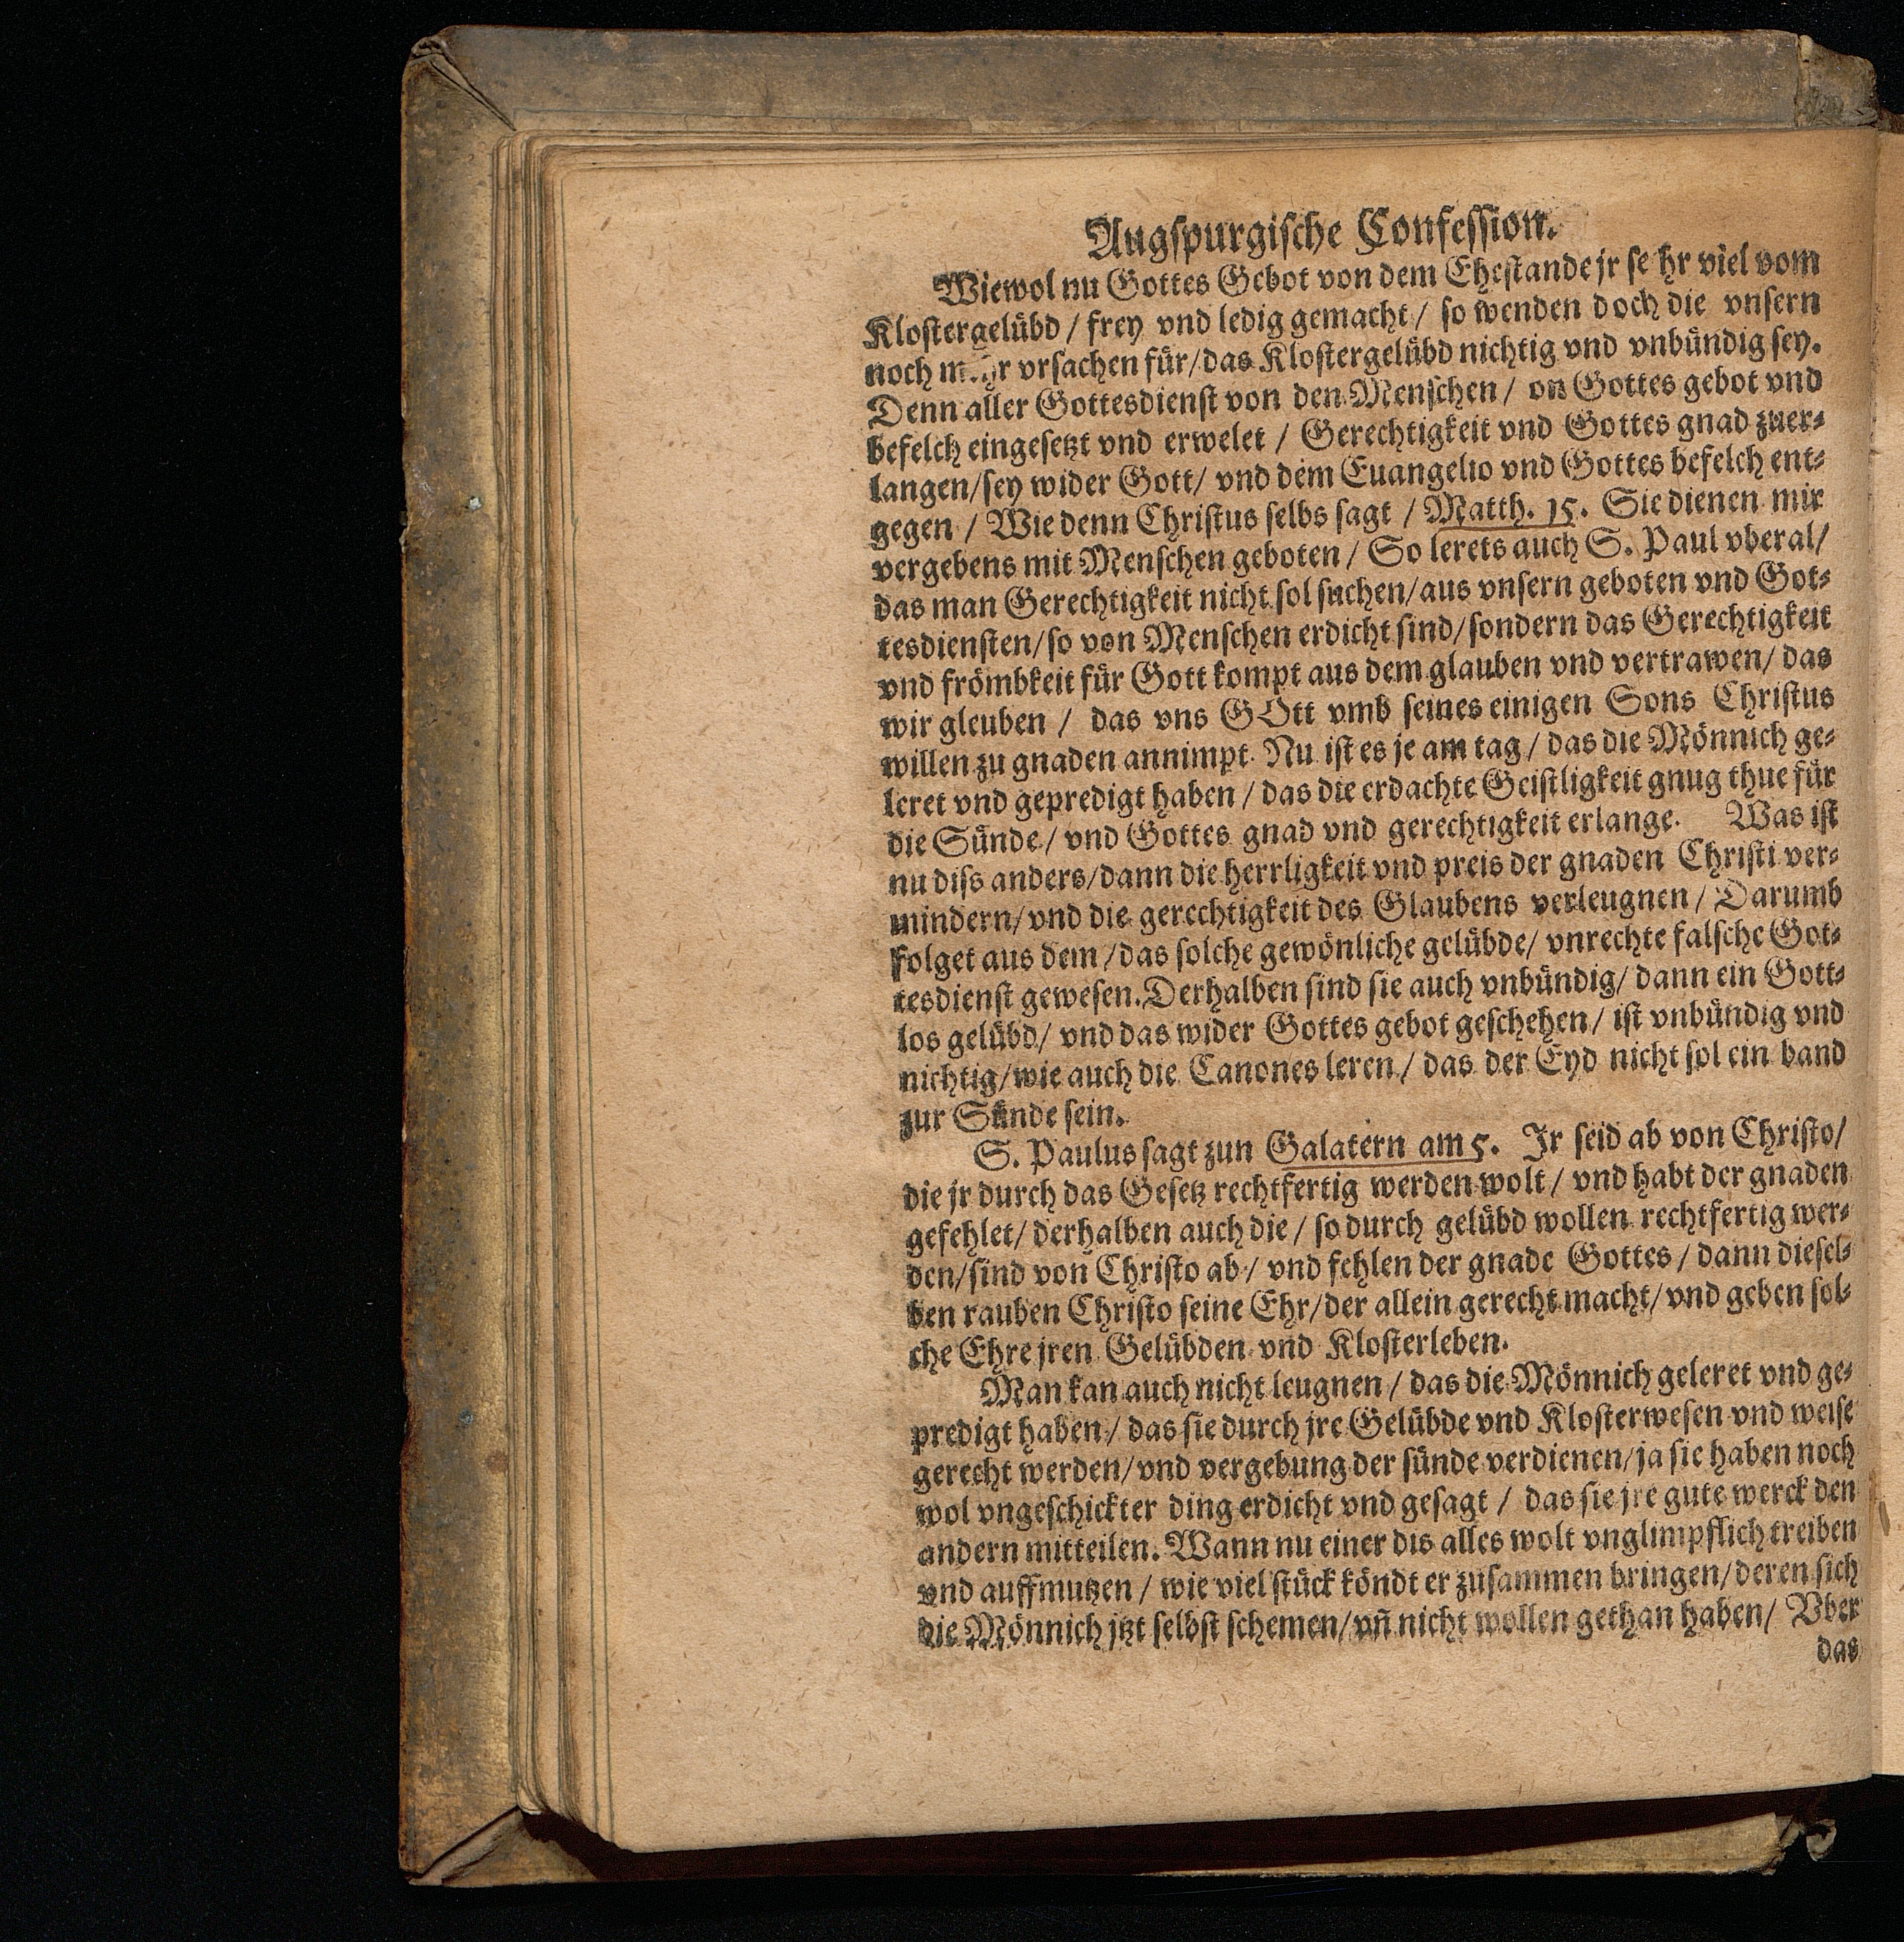 Augſpurgiſche Confeſſion.
Wiewol nu Gottes Gebot von dem Eheſtande jr ſe hr viel vom
Kloſtergelübd / frey vnd ledig gemacht / ſo wenden doch die vnſern
noch vrſachen für / das Kloſtergelübd nichtig vnd vnbündig ſey.
Denn aller Gottesdienſt von den Menſchen / on Gottes gebot vnd
befelch eingeſetzt vnd erwelet / Gerechtigkeit vnd Gottes gnad zuer⸗
langen / ſey wider Gott / vnd dem Euangelio vnd Gottes befelch ent⸗
gegen / Wie denn Chriſtus ſelbs ſagt / Matth. 15. Sie dienen mir
vergebens mit Menſchen geboten / So lerets auch S. Paul vberal /
das man Gerechtigkeit nicht ſol ſuchen / aus vnſern geboten vnd Got⸗
tesdienſten / ſo von Menſchen erdicht ſind / ſondern das Gerechtigkeit
vnd frömbkeit für Gott kompt aus dem glauben vnd vertrawen / das
wir gleuben / das vns GOtt vmb ſeines einigen Sons Chriſtus
willen zu gnaden annimpt. Nu iſt es je am tag / das die Mönnich ge⸗
leret vnd gepredigt haben / das die erdachte Geiſtligkeit gnug thue für
die Sünde / vnd Gottes gnad vnd gerechtigkeit erlange. Was iſt
nu diſs anders / dann die herrligkeit vnd preis der gnaden Chriſti ver⸗
mindern / vnd die gerechtigkeit des Glaubens verleugnen / Darumb
folget aus dem / das ſolche gewönliche gelübde / vnrechte falſche Got⸗
tesdienſt geweſen. Derhalben ſind ſie auch vnbündig / dann ein Gott⸗
los gelübd / vnd das wider Gottes gebot geſchehen / iſt vnbündig vnd
nichtig / wie auch die Canones leren / das der Eyd nicht ſol ein band
zur Sünde ſein.
S. Paulus ſagt zun Galatern am 5. Jr ſeid ab von Chriſto /
die jr durch das Geſetz rechtfertig werden wolt / vnd habt der gnaden
gefehlet / derhalben auch die / ſo durch gelübd wollen rechtfertig wer⸗
den / ſind von Chriſto ab / vnd fehlen der gnade Gottes / dann dieſel⸗
ben rauben Chriſto ſeine Ehr / der allein gerecht macht / vnd geben ſol⸗
che Ehre jren Gelübden vnd Kloſterleben.
Man kan auch nicht leugnen / das die Mönnich geleret vnd ge⸗
predigt haben / das ſie durch jre Gelübde vnd Kloſterweſen vnd weiſe
gerecht werden / vnd vergebung der ſünde verdienen / ja ſie haben noch
wol vngeſchickter ding erdicht vnd geſagt / das ſie jre gute werck den
andern mitteilen. Wann nu einer dis alles wolt vnglimpflich treiben
vnd auffmutzen / wie viel ſtück köndt er zuſammen bringen / deren ſich
die Mönnich jtzt ſelbſt ſchemen / vñ nicht wollen gethan haben / Vber
das